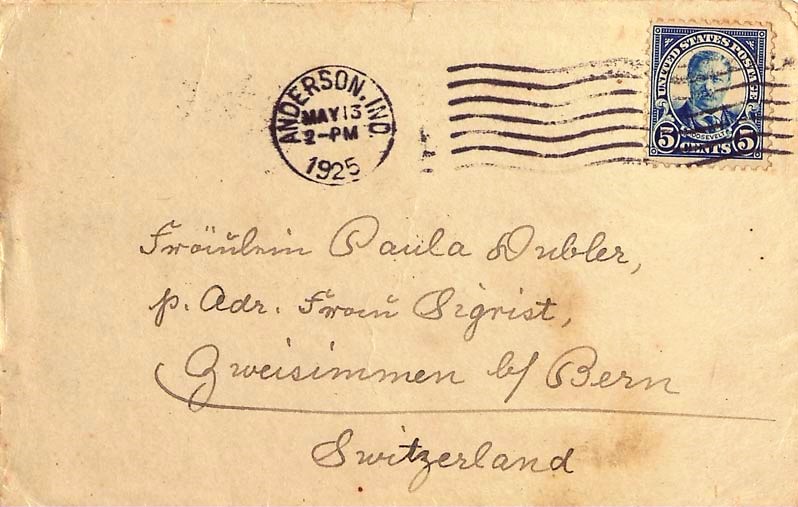 ANDERSON, IND.
MAY 13
2-PM
1925
UNITED STATES POSTAGE
ROOSEVELT
5 CENTS 5
Fräulein Paula Dubler,
p. Adr. Frau Sigrist,
Zweisimmen b/ Bern
Switzerland